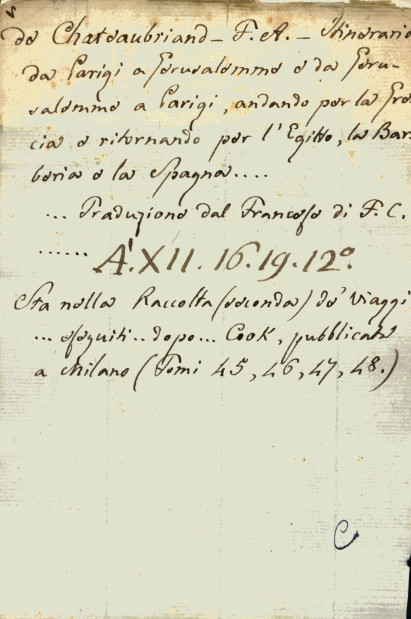 de Chateaubriand - F. A. - Itinerario
da Parigi a Gerusalemme e da Geru-
salemme a Parigi, andando per la Gre
cia e ritornando per l'Egitto, la Bar
beria e la Spagna....
... Traduzione dal Francese di F. C.
...... A'. XII. 16. 19. 12º.
Sta nella Raccolta (seconda) de' Viaggi
... eseguiti .. dopo ... Cook, pubblicata
a Milano (Tomi 45, 46, 47, 48.)
C